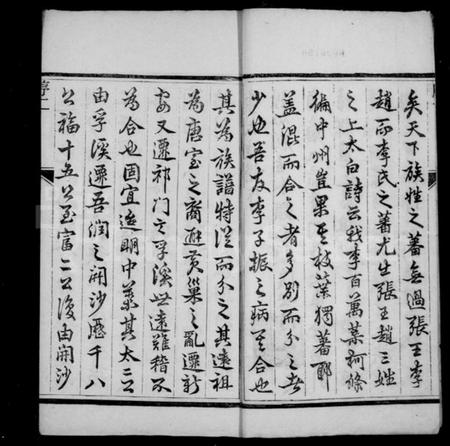 矣天下族姓之蕃無過張王李
趙而李氏之蕃尤生張王趙三姓
之上太白詩云我李百萬葉柯條
徧中州豈果其枝葉獨蕃耶
盖混而合之者多別而分之者
少也吾友李子振之病其合也
其為族譜特從而分之其遠祖
為唐室之裔避黃巢之亂遷新
安又遷祁門之孚溪世遠難稽不
為合也固宜迨明中葉其太二公
由孚溪遷吾潤之開沙歷千八
公福十五公至富二公復由開沙
序二